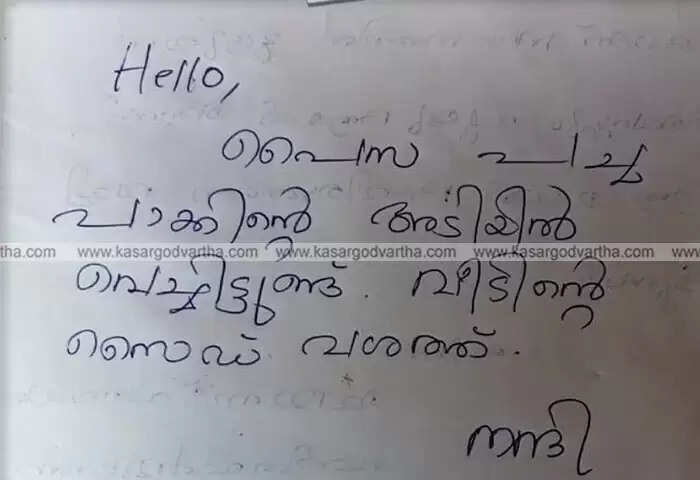 Hello,
പൈസ പിച്ച
പാക്കിന്റെ അടിയിൽ
www.kasargodvartha.com www.kasargodvartha.com www.kasargodvartha.com www.kasargodvartha.com
വെച്ചിട്ടുണ്ട്. വീട്ടിന്റെ
സൈഡ് വശത്ത്.
നന്ദി